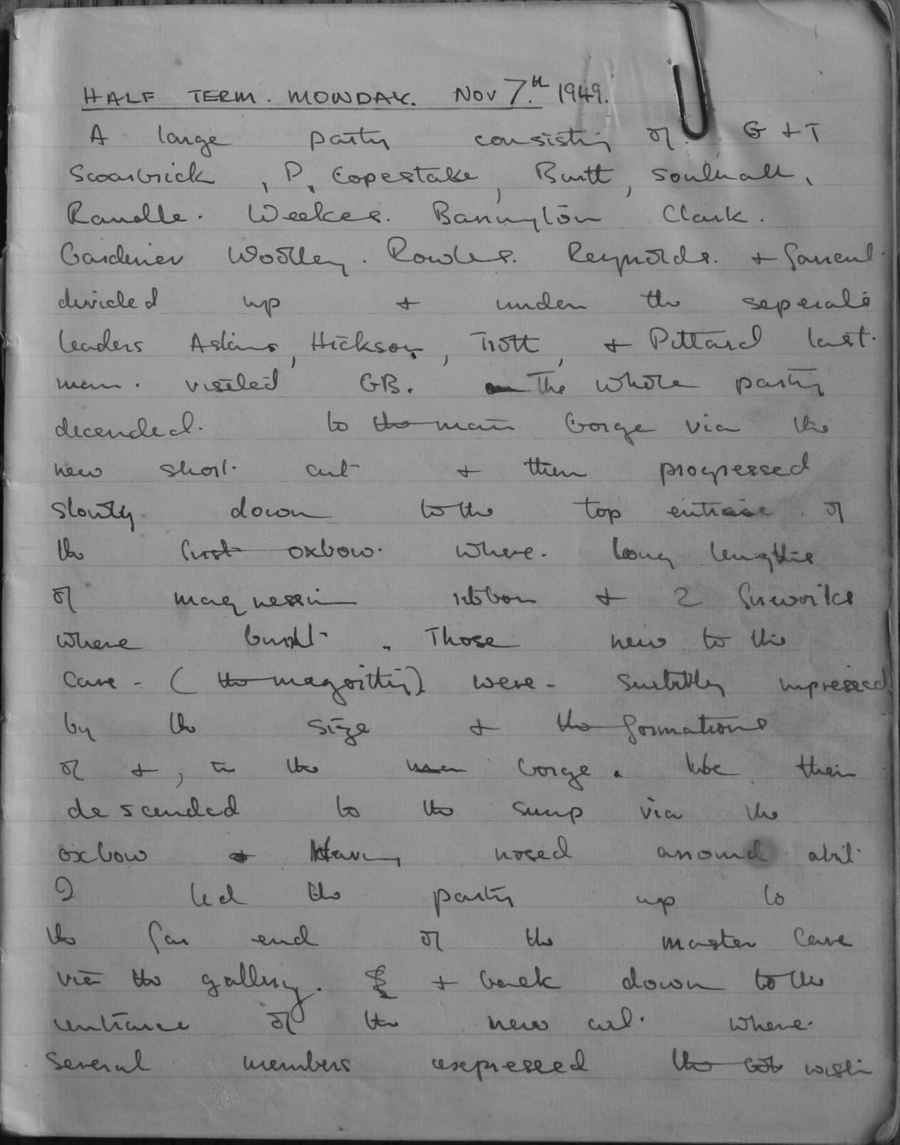 HALF TERM. MONDAY. NOV 7.th 1949.
A large party consisting of G & T
Scoarbrick, P. Copestake, Buitt, Southall,
Randle. Weekes. Barrington Clark.
Gardiner Woolley. Rowles. Reynolds. &
divided up & under the seperate
leaders Askins, Hickson, Trott, & Pittard last.
man. visited GB. The whole party
decended. to the main Gorge via the
new short cut & then progressed
slowly down to the top entrance of
the first oxbow. where. long lengths
of magnessium ribbon & 2 fireworks
where burnt. Those new to the
Cave - (the magoritty) were - suitably impressed
by the size & the formations
of &, in the Gorge. We then
descended to the sump via the
oxbow & Having nosed around abit
I led the party up to
the far end of the master Cave
via the gallery. & back down to the
entrance of the new cut. where.
Several members expressed the wish